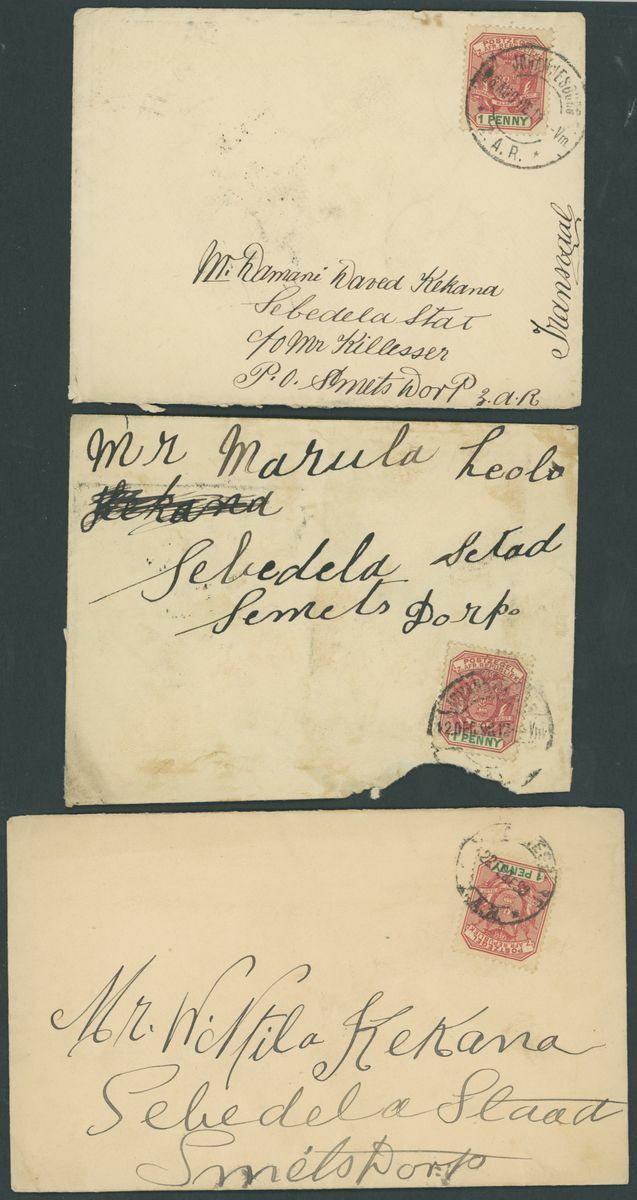 POSTZEGEL
Z. AFR. REPUBLIEK
1 PENNY
Z. A. R. *
Transvaal
Mr. Damani Daved Kekana
Sebedela Stat
c/o Mr Killesser
P.O. Smets Dorp Z.A.R
Mr Marula Leolo
Sebedela Setad
Semets Dorp
POSTZEGEL
Z. AFR. REPUBLIEK
2 DEC 98
1 PENNY
1 PENNY
Z. AFR. REPUBLIEK
POSTZEGEL
Mr. W. Ntila Kekana
Sebedela Staad
Smets Dorp